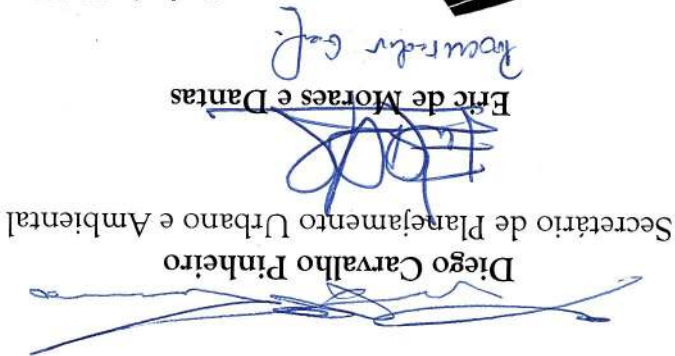 Diego Carvalho Pinheiro
Secretário de Planejamento Urbano e Ambiental
Eric de Moraes e Dantas
Procurador Geral